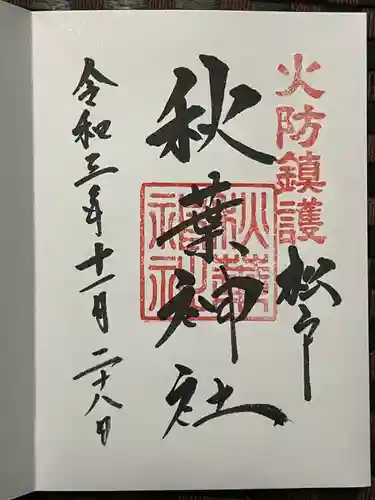 火防鎮護
松戸
秋葉神社
秋葉神社
令和三年十一月二十八日